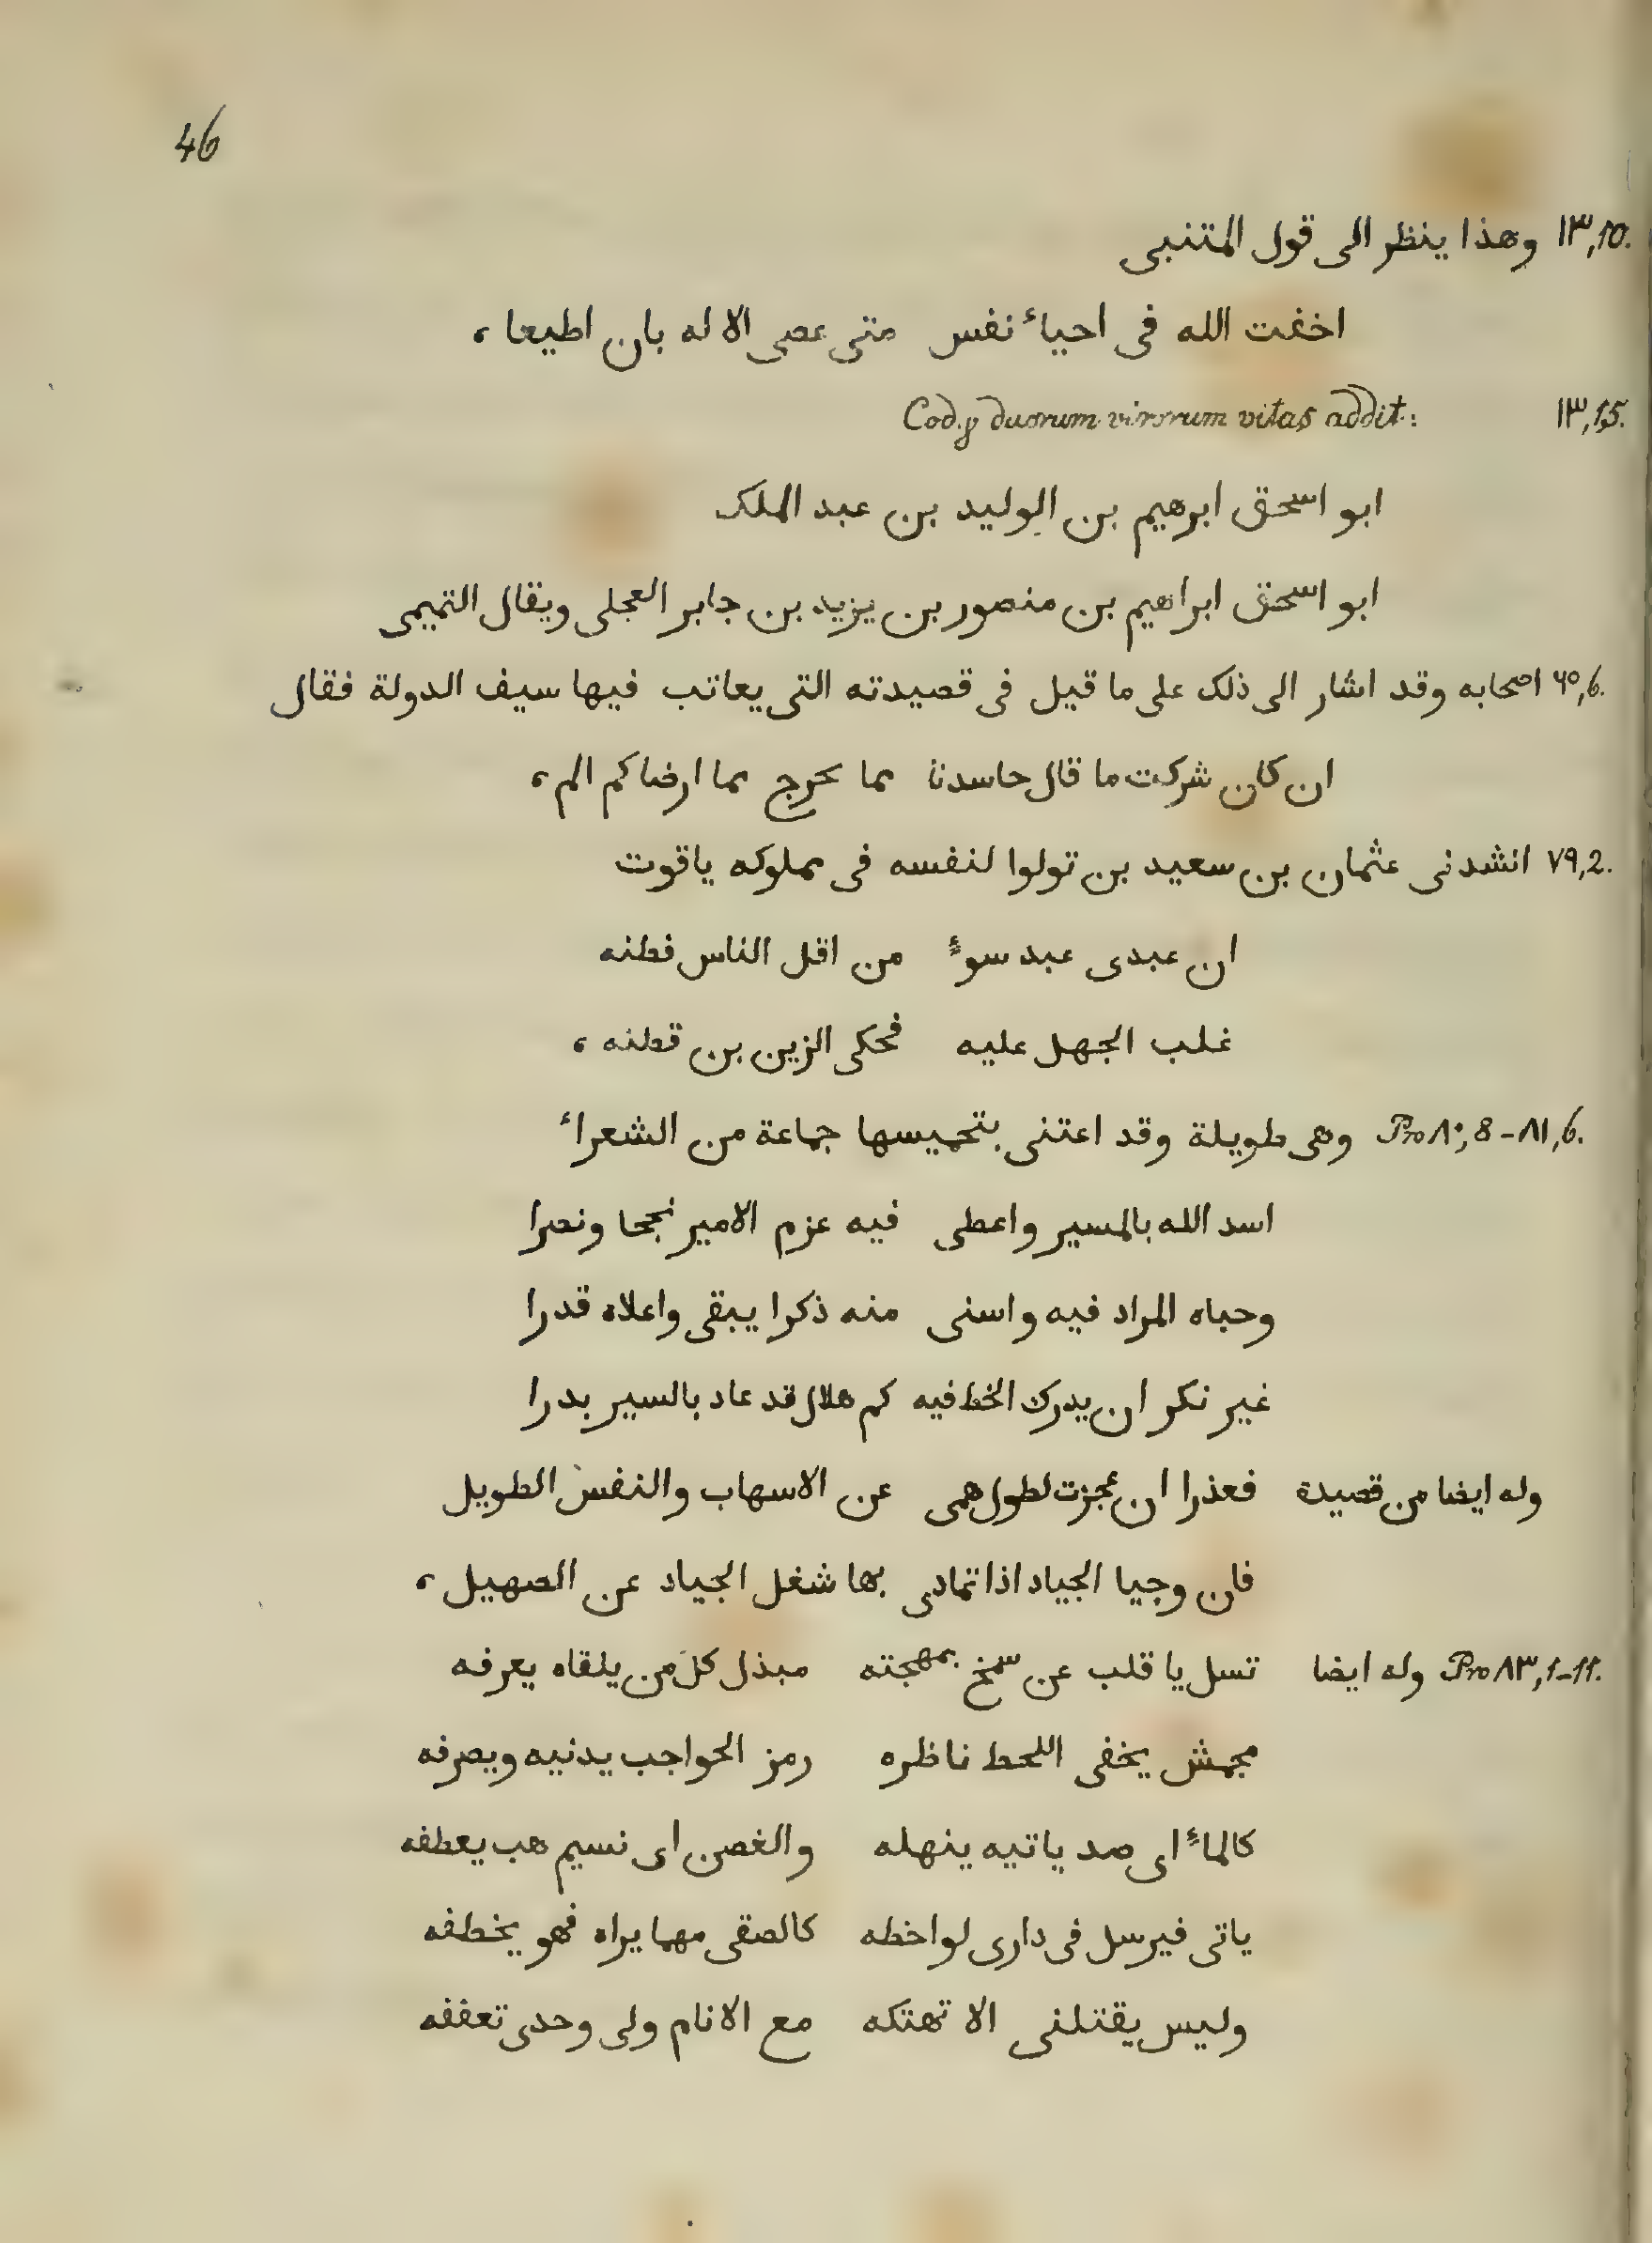 46
١٣,10. وهذا ينظر الى قول المتنبى
اخفت الله فى احياء نفس متى عصى الاله بان اطيعا ،
١٣,15. Cod. γ duorum virorum vitas addit:
ابو اسحق ابرهيم بن الوليد بن عبد الملك
ابو اسحق ابراهيم بن منصور بن يزيد بن جابر العجلى ويقال التميمى
٦٥,6. اصحابه وقد اشار الى ذلك على ما قيل فى قصيدته التى يعاتب فيها سيف الدولة فقال
ان كان شركت ما قال حاسدنا مما بحرج مما ارضاكم الم ،
٧٩,2. انشدنى عثمان بن سعيد بن تولوا لنفسه فى مملوكه ياقوت
ان عبدى عبد سوء من اقل الناس فطنه
غلب الجهل عليه فحكى الزين بن قطنه ،
Pro ٨٠,8–٨١,6. وهى طويلة وقد اعتنى بتخميسها جماعة من الشعراء
اسد الله بالمسير واعطى فيه عزم الامير نجحا ونصرا
وحباه المراد فيه واسنى منه ذكرا يبقى واعلاه قدرا
غير نكر ان يدرك الخط فيه كم هلال قد عاد بالسير بدرا
وله ايضا من قصيدة فعذرا ان عجزت لطول همى عن الاسهاب والنفس الطويل
فان وجيا الجياد اذا تمادى بها شغل الجياد عن الصهيل ،
Pro ٨٣,1–11. وله ايضا تسل يا قلب عن سمح بمهجته مبذل كل من يلقاه يعرفه
مجمش يخفى اللحظ ناظره رمز الحواجب يدنيه ويصرفه
كالماء اى صد ياتيه ينهله والغصن اى نسيم هب يعطفه
ياتى فيرسل فى دارى لواحظه كالصقى مهما يراه فهو يخطفه
وليس يقتلنى الا تهتكه مع الانام ولى وحدى تعففه